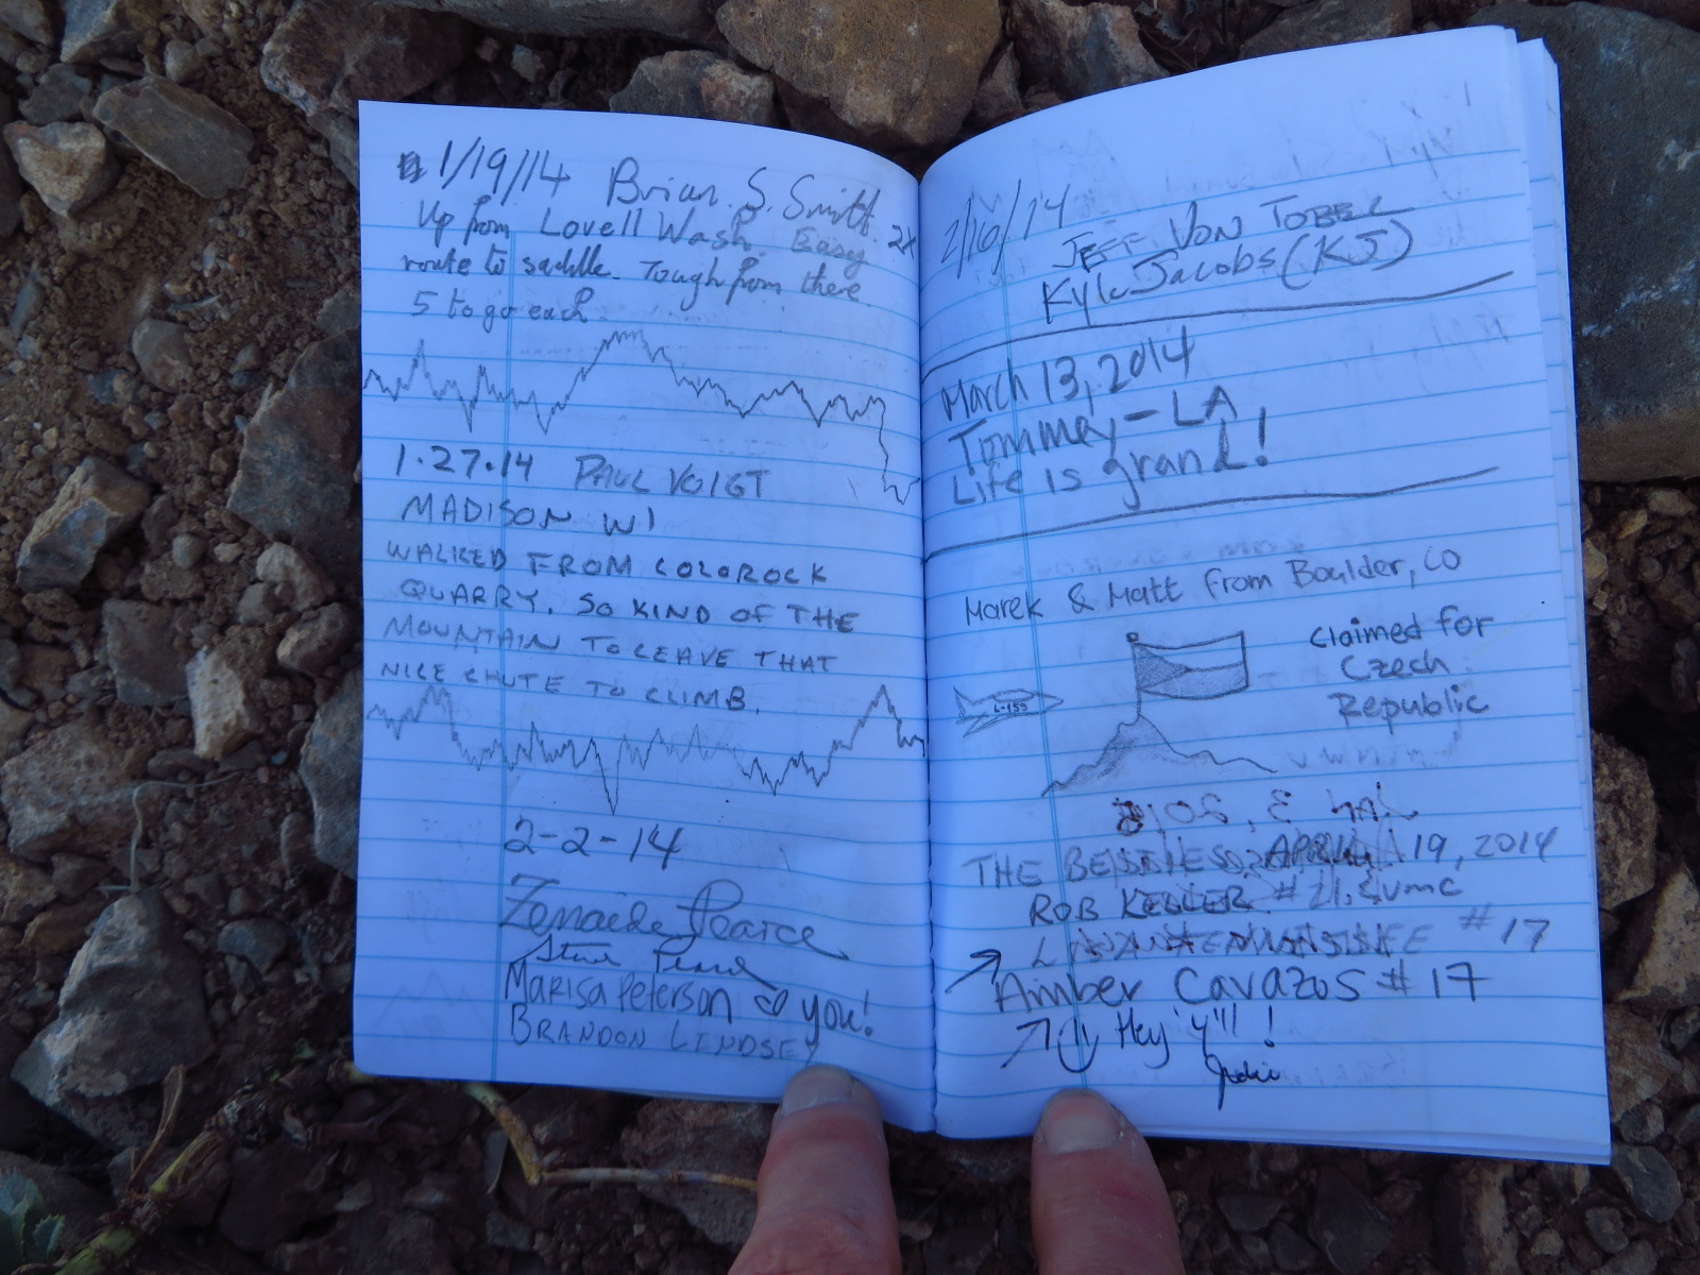 1/19/14 Brian S. Smith 2x
Up from Lovell Wash. Easy
route to saddle. Tough from there.
5 to go each.
1.27.14 PAUL VOIGT
MADISON WI
WALKED FROM COLOROCK
QUARRY. SO KIND OF THE
MOUNTAIN TO LEAVE THAT
NICE CHUTE TO CLIMB.
2-2-14
Zenaide Pearce
Marisa Peterson you!
BRANDON LINDSEY
2/16/14
JEFF VON TOBEL
Kyle Jacobs (KJ)
March 13, 2014
Tommey - LA
Life is grand!
Marek & Matt from Boulder, CO
Claimed for
Czech
Republic
L-159
APRIL 19, 2014
ROB KELLER #21.
#17
Amber Cavazos #17
Hey y'll!